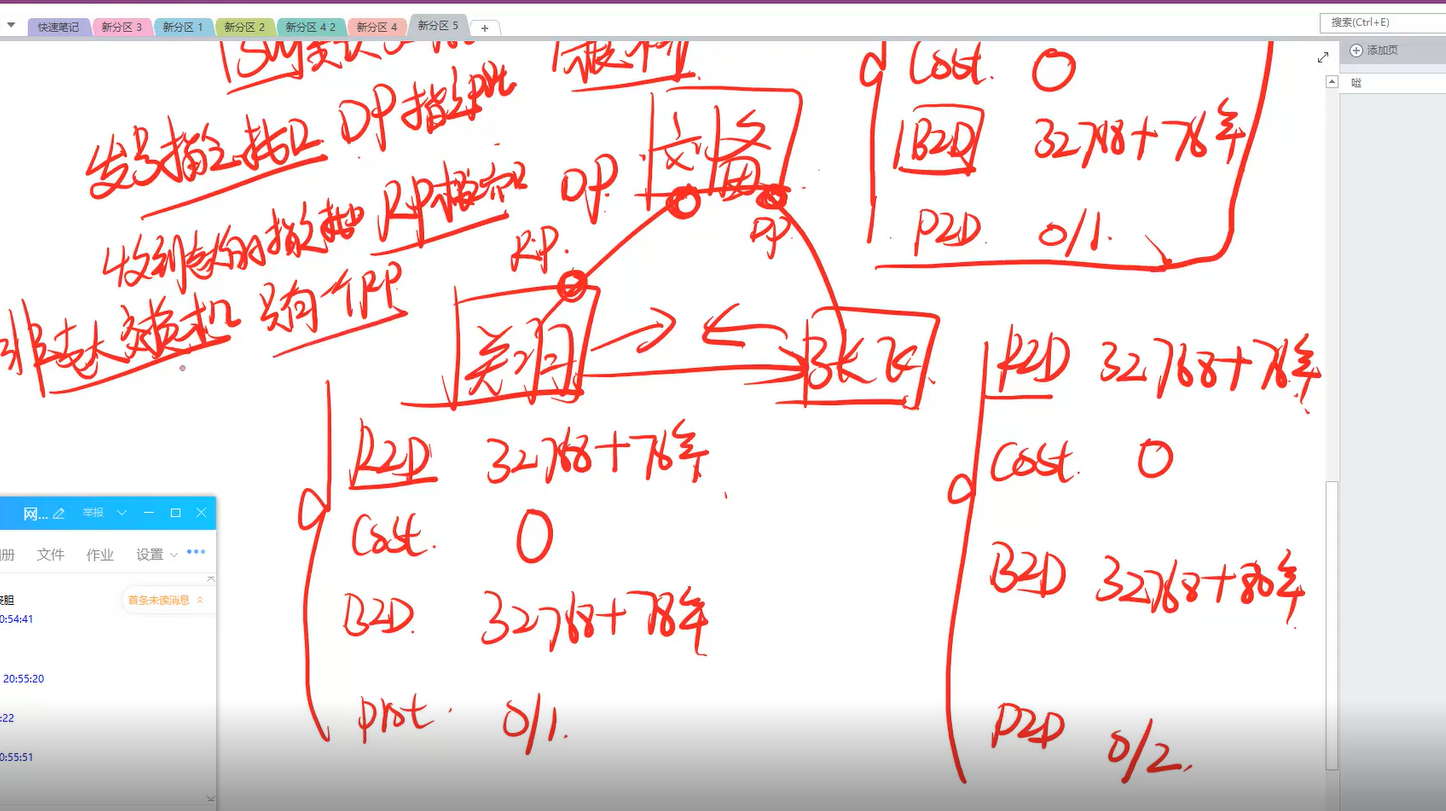 快速笔记 新分区 3 新分区 1 新分区 2 新分区 4 2 新分区 4 新分区 5 +
搜索(Ctrl+E)
添加页
嗌
Cost. 0
B2D 32768+76年
P2D. 0/1.
发号指令接口 DP 指定口
收到老大的指令接口 RP
非老大交换机 只有一个RP
刘备
DP
DP.
RP.
关羽
张飞
R2D 32768+76年
Cost. 0
B2D. 32768+78年
prot. 0/1.
R2D 32768+76年
Cost. 0
B2D 32768+80年
P2D 0/2.
网... 举报
册 文件 作业 设置
胆
首条未读消息
0:54:41
20:55:20
:22
0:55:51